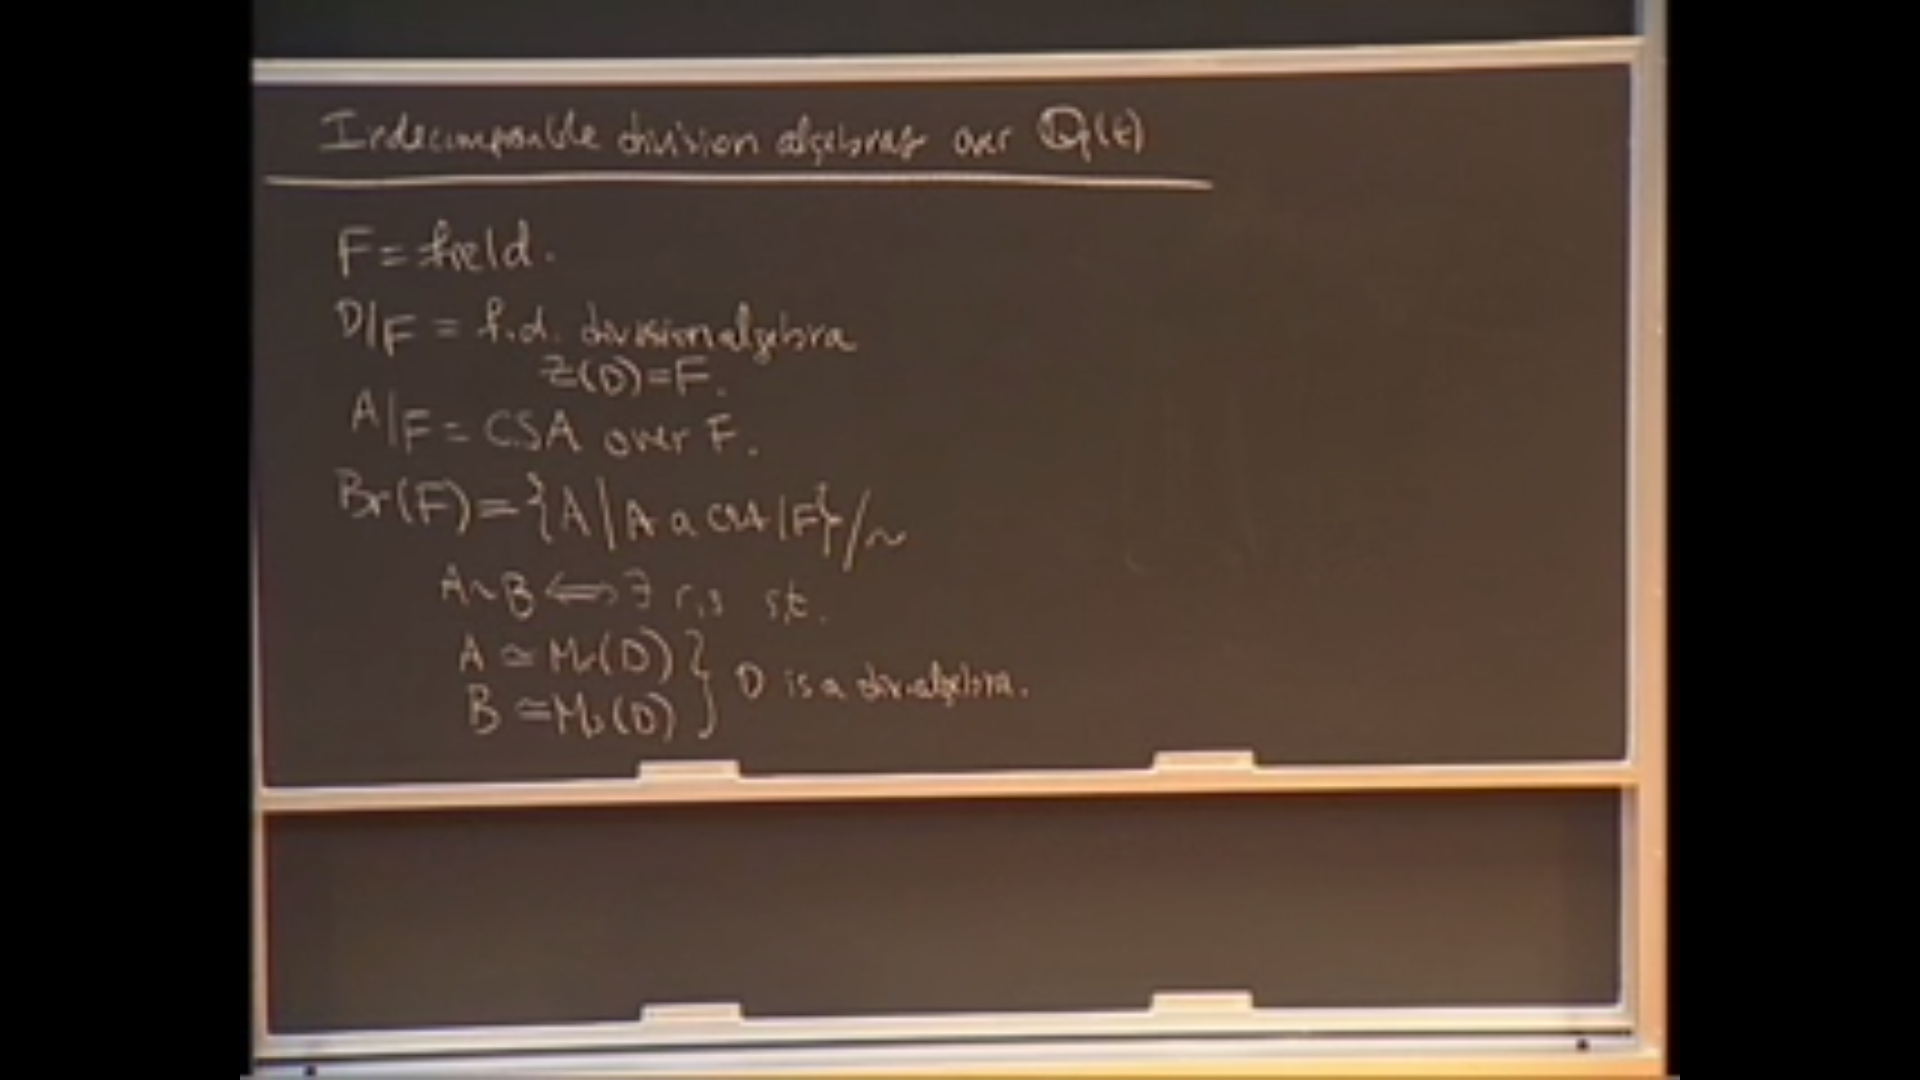 Indecomposable division algebras over ℚ(t)
F = field.
D/F = f.d. division algebra
Z(D)=F.
A/F = CSA over F.
Br(F) = {A | A a CSA/F}/~
A~B ⟺ ∃ r,s s.t.
A ≃ Mr(D)
B ≃ Ms(D) } D is a div. algebra.